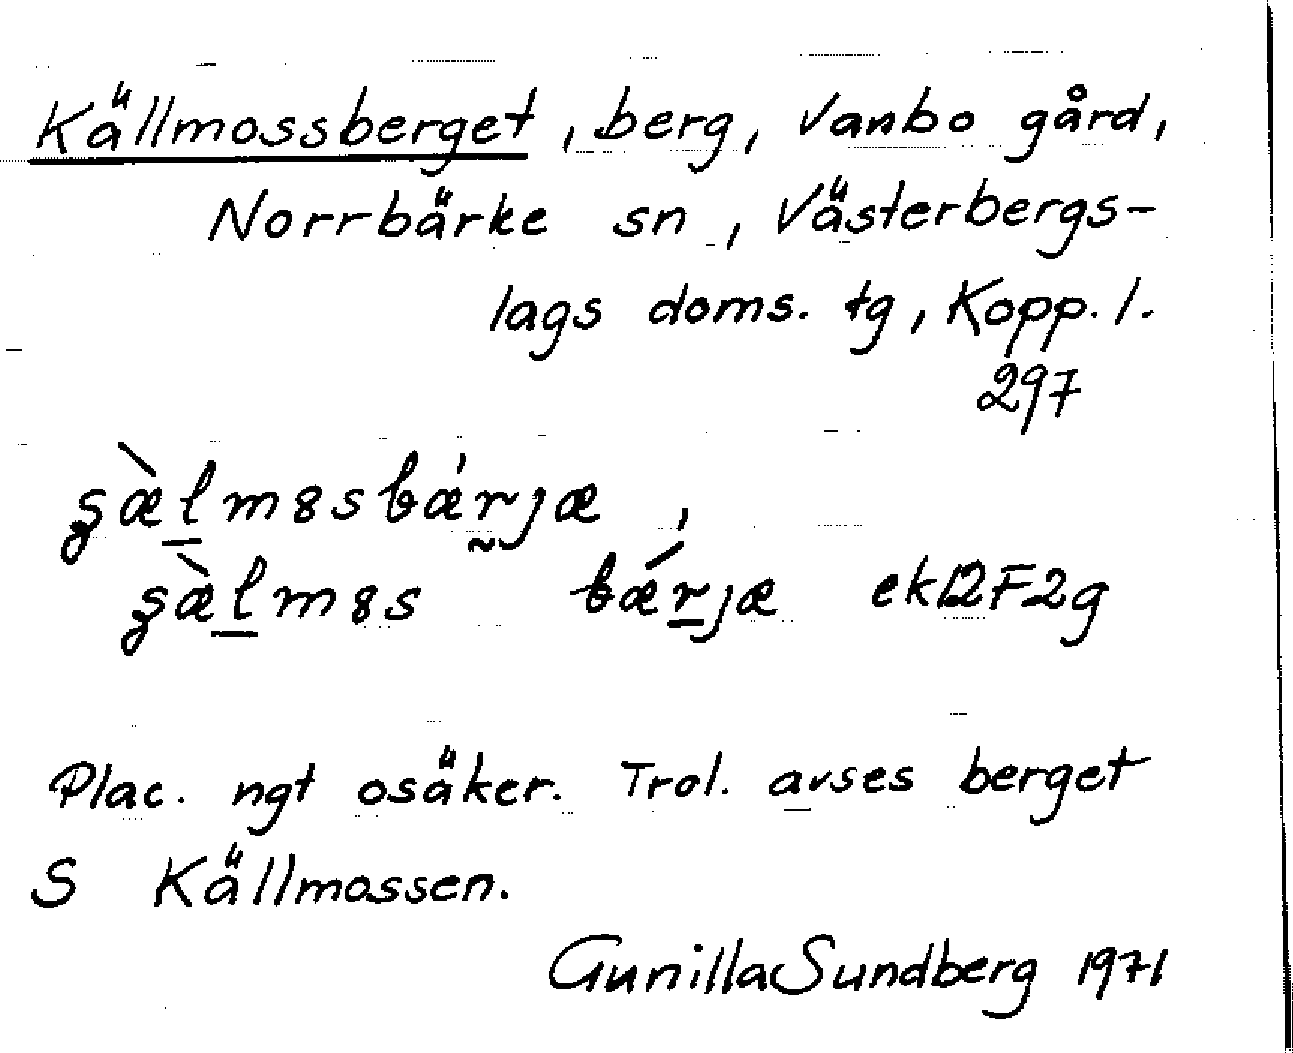 Källmossberget, berg, Vanbo gård,
Norrbärke sn, Västerbergs-
lags doms. tg, Kopp. l.
297
ʂæ̀l̲m8sbǽr̰jæ,
ʂæ̀l̲m8s bǽr̲jæ ek12F2g
Plac. ngt osäker. Trol. avses berget
S Källmossen.
Gunilla Sundberg 1971